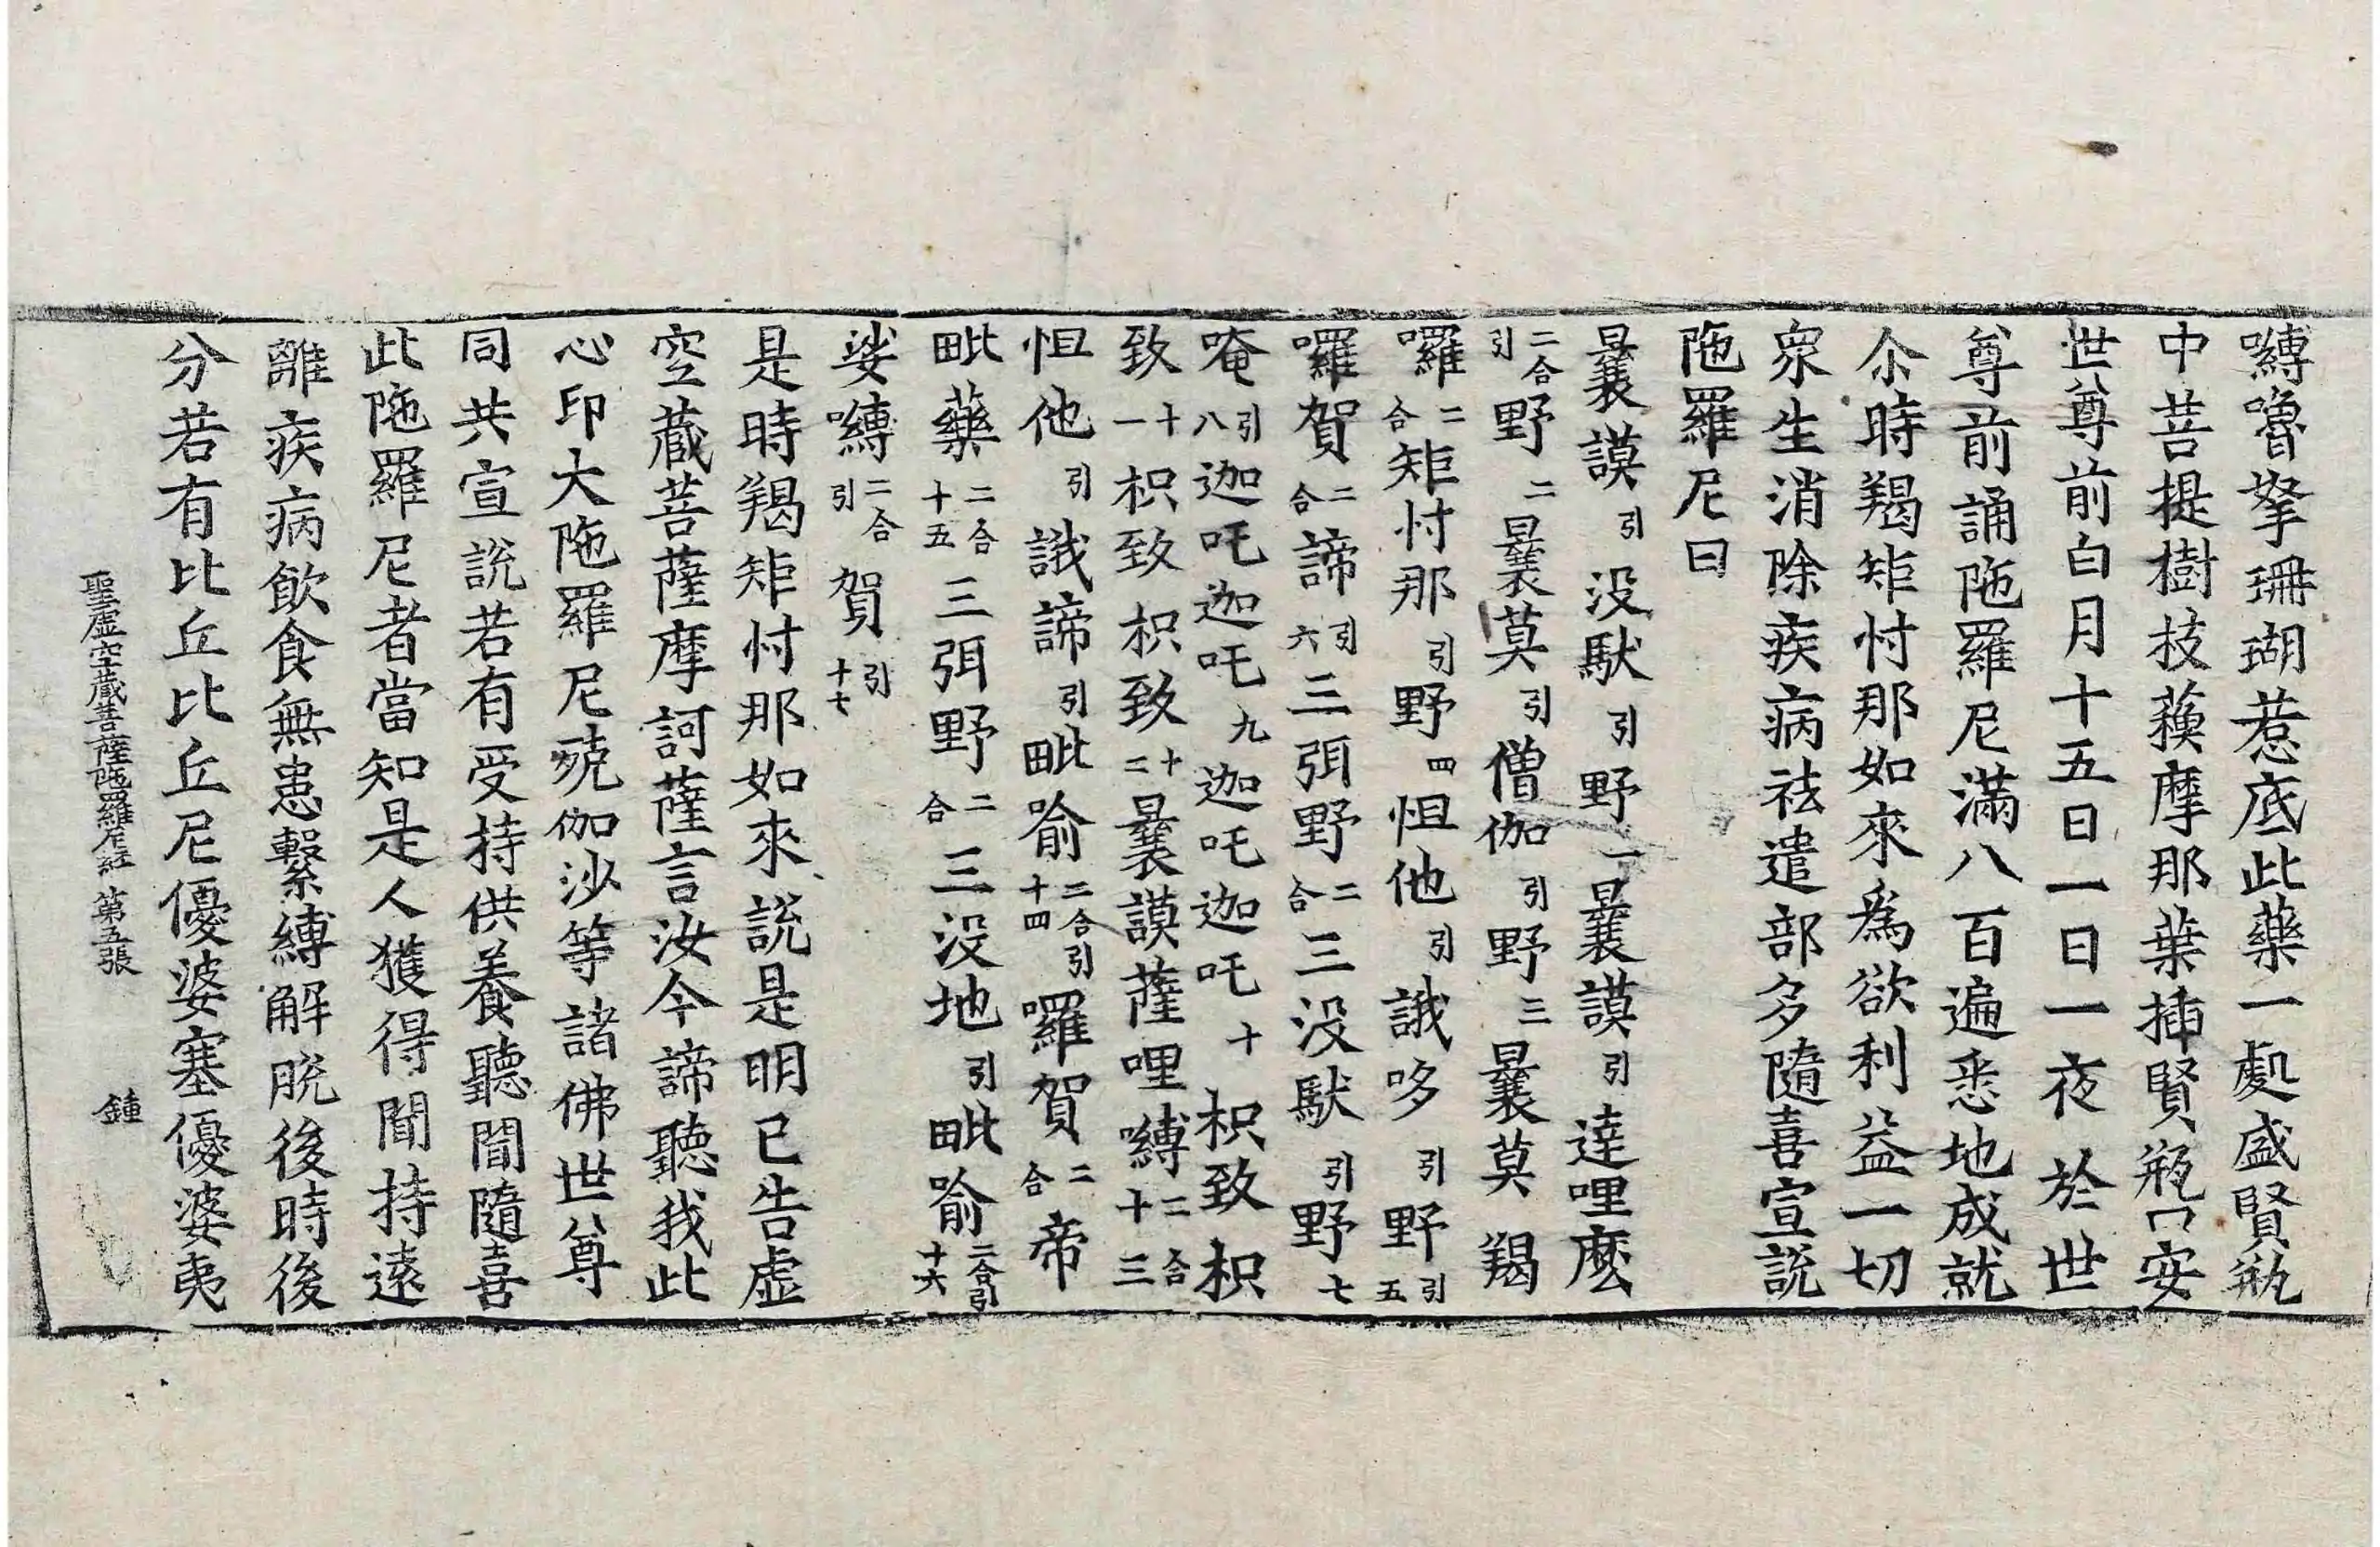 嚩嚕拏珊瑚惹底此藥一處盛賢瓶
中菩提樹枝蘓摩那葉揷賢瓶口安
世尊前白月十五日一日一夜於世
尊前誦陁羅尼滿八百遍悉地成就
尒時羯矩忖那如來爲欲利益一切
衆生消除疾病祛遣部多隨喜宣説
陁羅尼曰
曩謨引没馱引野一曩謨引達哩麽
二合引野二曩莫引僧伽引野三曩莫羯
囉二合矩忖那引野四怛他引誐哆引野引五
囉賀二合諦引六三弭野二合三没馱引野七
唵引八迦吒迦吒九迦吒迦吒十枳致枳
致十一枳致枳致十二曩謨薩哩嚩二合十三
怛他引誐諦引毗喻二合引十四囉賀二合帝
毗藥二合十五三弭野二合三没地引毗喻二合引十六
娑嚩二合引賀引十七
是時羯矩忖那如來説是明已告虛
空藏菩薩摩訶薩言汝今諦聽我此
心印大陁羅尼殑伽沙等諸佛世尊
同共宣説若有受持供養聽聞隨喜
此陁羅尼者當知是人獲得聞持遠
離疾病飲食無患繫縛解脫後時後
分若有比丘比丘尼優婆塞優婆夷
聖虛空藏菩薩陁羅尼經 第五張 鍾